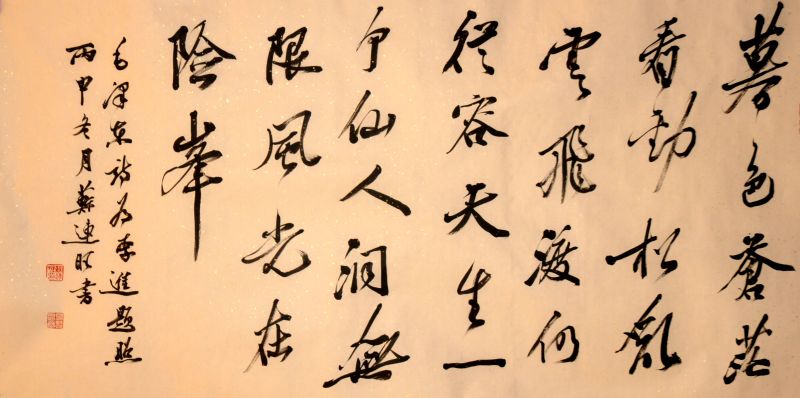 暮色蒼茫
看勁松亂
雲飛渡仍
從容天生一
个仙人洞無
限風光在
險峯
毛澤東詩為李進題照
丙申冬月蘇連旺書